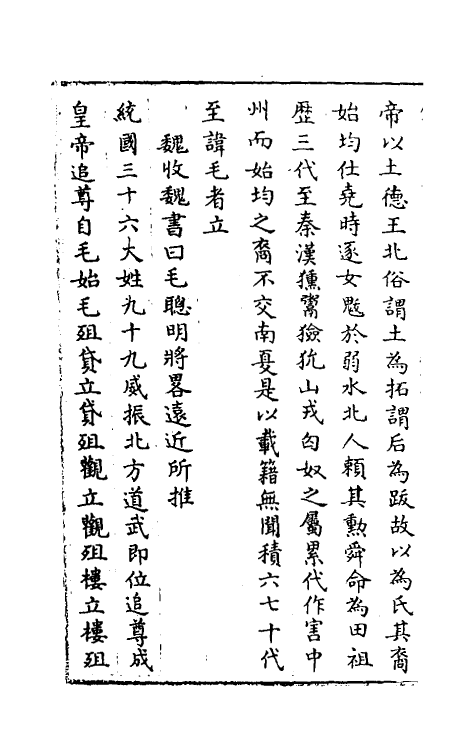 帝以土德王北俗謂土為拓謂后為跋故以為氏其裔
始均仕堯時逐女魃於弱水北人頼其勲舜命為田祖
歴三代至秦漢獯鬻獫狁山戎匈奴之屬累代作害中
州而始均之裔不交南夏是以載籍無聞積六七十代
至諱毛者立
魏收魏書曰毛聰明將畧遠近所推
統國三十六大姓九十九威振北方道武即位追尊成
皇帝追尊自毛始毛殂貸立貸殂觀立觀殂樓立樓殂